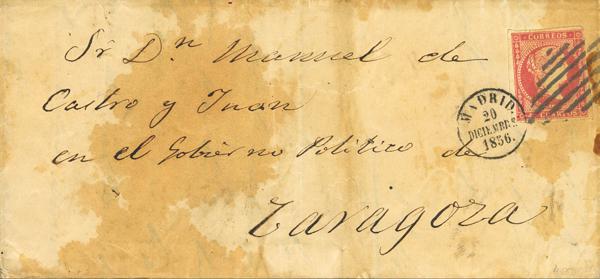 Sr Dn Manuel de
Castro y Juan
en el Gobierno Politico de
Zaragoza
CORREOS
MADRID.
20
DICIEMBRE
1856.